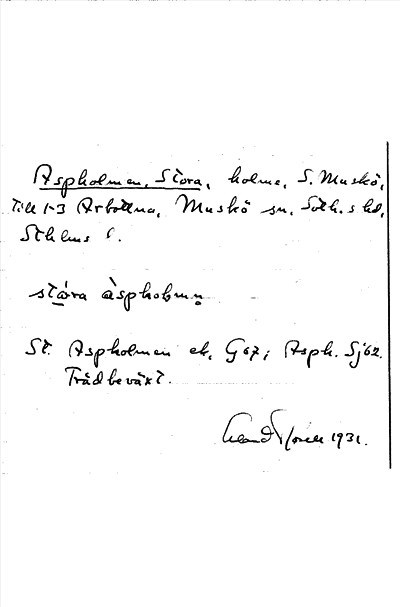 Aspholmen, Stora, holme, S. Muskö,
Till 1-3 Arbottna, Muskö sn, Soth.s hd,
Sthlms l.
stóra àspholmn̥
St. Aspholmen ek. G67; Asph. Sj62.
Trädbeväxt.
1931.